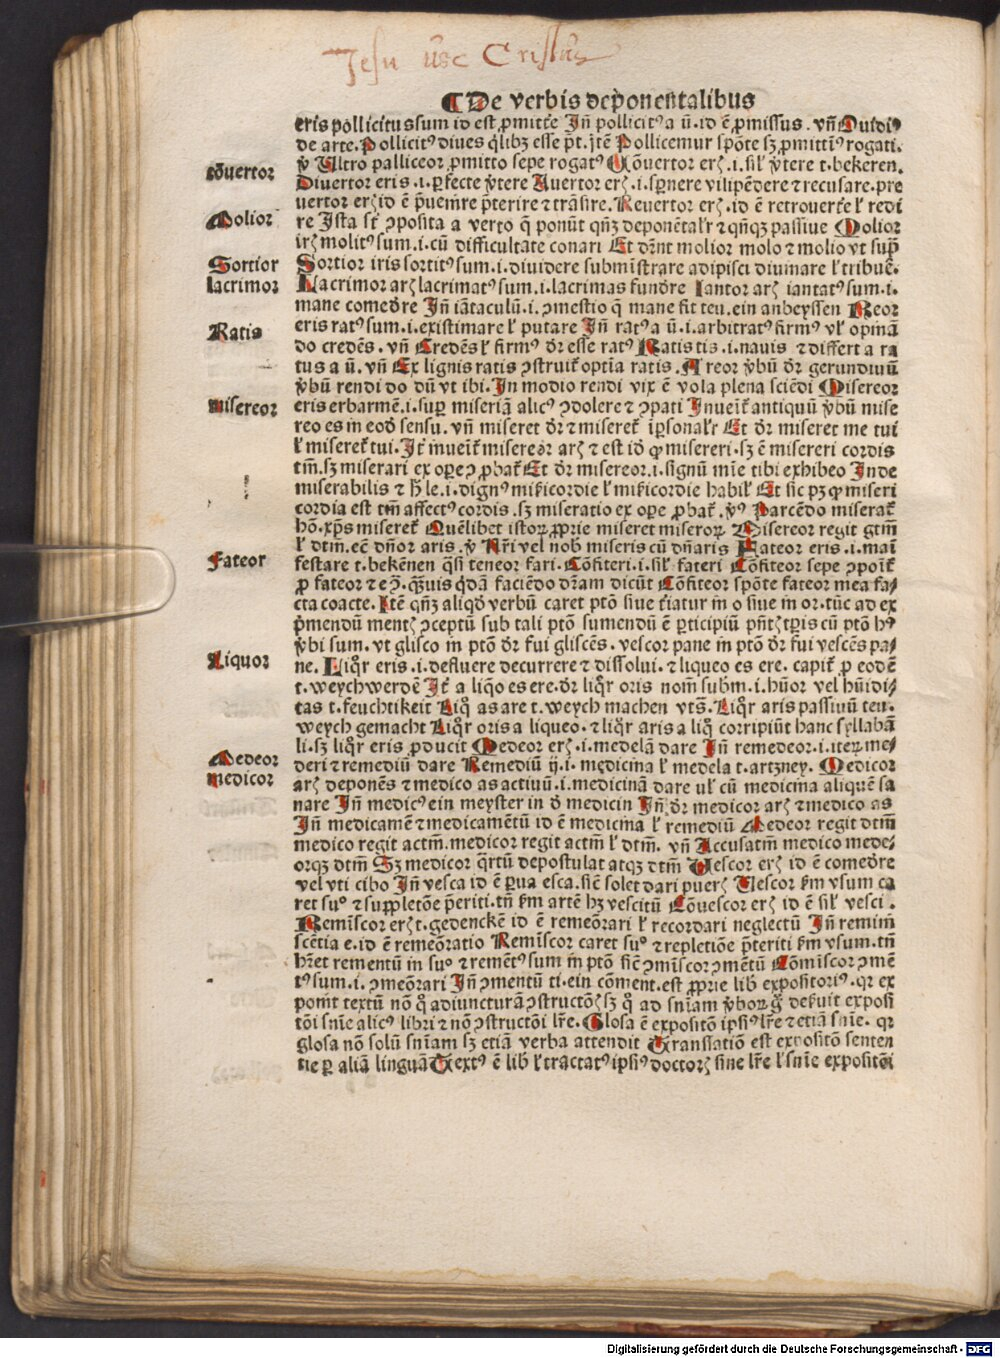 Jesu Cristus
¶ De verbis deponentalibus
eris pollicitus sum id est ꝓmittere Jñ pollicitꝰ a ū. id ē ꝓmissus. vñ Ouidiꝰ
de arte. Pollicitꝰ diues q̄libꝫ esse pt. itē Pollicemur spōte sꝫ ꝓmittimꝰ rogati.
ꝟ Ultro palliceor ꝓmitto sepe rogatꝰ Cōuertor erꝭ .i. sił ꝟtere t. bekeren.
cōuertor
Diuertor eris .i. ꝑfecte ꝟtere Auertor erꝭ .i. spernere vilipēdere ⁊ recusare. pre
uertor erꝭ id ē p̄uenire p̄terire ⁊ trāsire. Reuertor erꝭ .id ē retrouerťe ł redi
Molior
re Ista sť ↄposita a verto q̄ ponūt qn̄ꝫ deponētałr ⁊ qn̄qꝫ passiue Molior
irꝭ molitꝰ sum .i. cū difficultate conari Et dn̄t molior molo ⁊ molio vt sup̄
Sortior
Sortior iris sortitꝰ sum .i. diuidere submīstrare adipisci diuinare ł tribue.
lacrimor
Lacrimor arꝭ lacrimatꝰ sum .i. lacrimas fundře Iantor arꝭ iantatꝰ sum .i.
mane comedře Jñ iātaculū .i. ↄmestio q̄ mane fit teu. ein anbeyssen Reor
Ratis
eris ratꝰ sum .i. existimare ł putare Jñ ratꝰ a ū .i. arbitratꝰ firmꝰ vł opinā
do credēs. vñ Credēs ł firmꝰ dr̄ esse ratꝰ Ratis tis .i. nauis ⁊ differt a ra
tus a ū. vñ Ex lignis ratis ↄstruiť optīa ratis. A reor ꝟbū dr̄ gerundiuū
ꝟbū rendi do dū vt ibi. In modio rendi vix ē vola plena sciēdi Misereor
misereor
eris erbarmē .i. suꝑ miseriā alicꝰ ↄdolere ⁊ ↄpati Inueniť antiquū ꝟbū mise
reo es in eodē sensu. vñ miseret dr̄ ⁊ misereť iꝑsonałr Et dr̄ miseret me tui
ł misereť tui. Jť inueniť misereor arꝭ ⁊ est idē qꝫ misereri. sꝫ ē misereri cordis
tm̄. sꝫ miserari ex opeꝫ ꝓbať Et dr̄ misereor .i. signū mīe tibi exhibeo Inde
miserabilis ⁊ h̄ le .i. dignꝰ mīicordie ł mīicordie habił Et sic pꝫ qꝫ miseri
cordia est tm̄ affectꝰ cordis. sꝫ miseratio ex ope ꝓbať. ꝟꝰ Parcēdo miserať
hō. xp̄s misereť Quēlibet istoꝝ ꝓprie miseret miseroꝝ Misereor regit gtm̄
ł dtm̄. eē dn̄or aris. ꝟ Nr̄i vel nob miseris cū dn̄aris Fateor eris .i. mani
Fateor
festare t. bekēnen q̄si teneor fari. Cōfiteri .i. sił fateri Cōfiteor sepe ↄponiť
ꝓ fateor ⁊ eↄ. q̄uis q̄dā faciēdo dr̄am dicūt Cōfiteor spōte fateor mea fa
cta coacte. Itē qn̄ꝫ aliqd̄ verbū caret ptō siue ťiatur in o siue in or. tūc ad ex
p̄mendū mentꝭ ↄceptū sub tali ptō sumendū ē ꝑticipiū pn̄tꝭ tꝑis cū ptō hꝰ
ꝟbi sum. vt glisco in ptō dr̄ fui gliscēs. vescor pane in ptō dr̄ fui vescēs pa
Liquor
ne. Liqr̄ eris .i. defluere decurrere ⁊ dissolui. ⁊ liqueo es ere. capiť ꝓ eodē
t. weychwerdē Jť a liq̄o es ere. dr̄ liqr̄ oris nom̄ subm̄ .i. hūor vel hūidi
tas t. feuchtikeit Liqo as are t. weych machen vtꝭ. Liqr̄ aris passiuū teu.
weych gemacht Liqr̄ oris a liqueo. ⁊ liqr̄ aris a liqo corripiūt hanc syllabā
li. sꝫ liqr̄ eris ꝓducit Medeor erꝭ .i. medelā dare Jñ remedeor .i. iteꝝ me
Medeor
deri ⁊ remediū dare Remediū ij. i. medicina ł medela t. artzney. Medicor
medicor
arꝭ deponēs ⁊ medico as actiuū .i. medicinā dare uł cū medicina aliquē sa
nare Jñ medicꝰ ein meyster in d̄ medicin Jñ dr̄ medicor arꝭ ⁊ medico as
Jñ medicamē ⁊ medicamētū id ē medicina ł remediū Medeor regit dtm̄
medico regit actm̄. medicor regit actm̄ ł dtm̄. vñ Accusatm̄ medico mede
orqꝫ dtm̄ Sꝫ medicor q̄rtū depostulat atqꝫ dtm̄ Vescor erꝭ id ē comedře
vel vti cibo Jñ vesca id ē ꝑua esca. sic̄ solet dari puerꝭ Vescor km̄ vsum ca
ret suº ⁊ supꝓletōe p̄teriti. tn̄ km̄ artē hꝫ vescitū Cōuescor erꝭ id ē sił vesci.
Remīscor erꝭ t. gedenckē id ē remeōrari ł recordari neglectū Jñ reminī
scētia e. id ē remeōratio Remīscor caret suº ⁊ repletiōe p̄teriti km̄ vsum. tn̄
hr̄et rementū in suº ⁊ remētꝰ sum in ptō sic̄ ↄmīscor ↄmētū Cōmīscor ↄmē
tꝰ sum .i. ↄmeōrari Jñ ↄmentū ti. ein cōment. est ꝓprie lib expositoriꝰ. qr ex
ponit textū non q̄ ad iuncturā ↄstructōꝭ sꝫ q̄ ad sn̄iam ꝟboꝝ ḡ defuit exposi
tōi sn̄ie alicꝰ libri ⁊ nō ↄstructōi lr̄e. Glosa ē expositō ipsiꝰ lr̄e ⁊ etiā sn̄ie. qr
glosa nō solū sn̄iam sꝫ etiā verba attendit Translatiō est expositō senten
tie ꝑ aliā linguā Textꝰ ē lib ł tractatꝰ ipsiꝰ doctorꝭ sine lr̄e ł sn̄ie expositōi
Digitalisierung gefördert durch die Deutsche Forschungsgemeinschaft - DFG